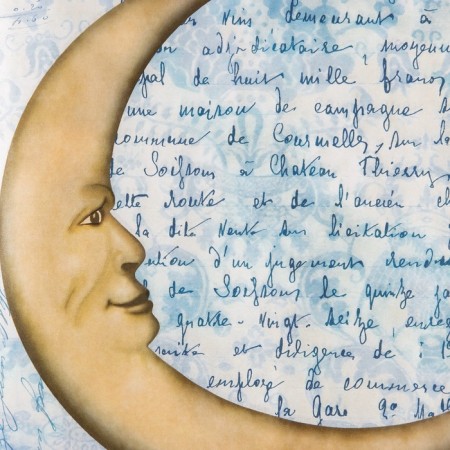 Vins demeurant à
on adjudicataire moyenn
pal de huit mille francs
une maison de campagne s
commune de Courmelles, sur la
de Soissons à Chateau Thierry
ette route et de l'ancien ch
la dite Vente sur licitation
ution d'un jugement rendu
l de Soissons le quinze ja
quatre-vingt-seize, enre
suite et diligence de :
employé de commerce
la Gare